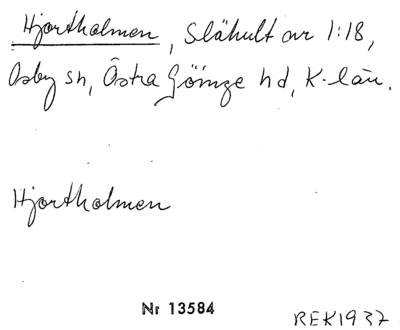 Hjortholmen, Slähult nr 1:18,
Osby sn, Östra Göinge hd, K-län.
Hjortholmen
Nr 13584
REK1937